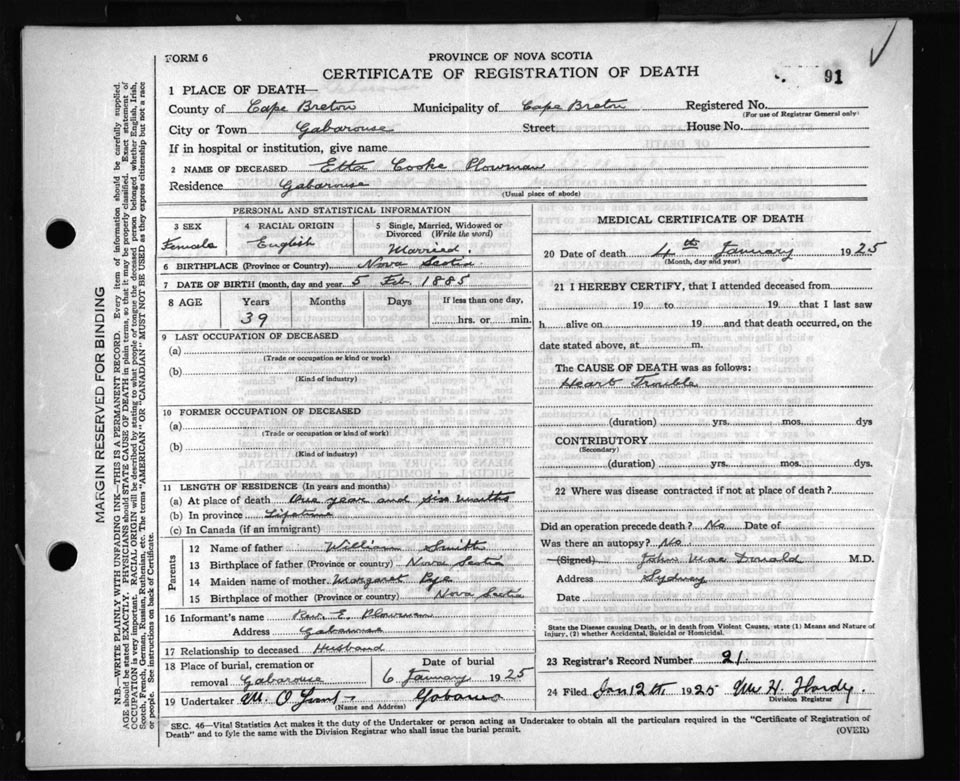 FORM 6
PROVINCE OF NOVA SCOTIA
CERTIFICATE OF REGISTRATION OF DEATH
91
1 PLACE OF DEATH—
County of Cape Breton Municipality of Cape Breton Registered No.
(For use of Registrar General only)
City or Town Gabarouse Street House No.
If in hospital or institution, give name
2 NAME OF DECEASED Etta Cooke Plowman
Residence Gabarouse
(Usual place of abode)
PERSONAL AND STATISTICAL INFORMATION
3 SEX 4 RACIAL ORIGIN 5 Single, Married, Widowed or Divorced (Write the word)
Female English Married.
6 BIRTHPLACE (Province or Country) Nova Scotia
7 DATE OF BIRTH (month, day and year) 5 Feb. 1885
8 AGE Years Months Days If less than one day,
39 hrs. or min.
9 LAST OCCUPATION OF DECEASED
(a)
(Trade or occupation or kind or work)
(b)
(Kind of industry)
10 FORMER OCCUPATION OF DECEASED
(a)
(Trade or occupation or kind of work)
(b)
(Kind of industry)
11 LENGTH OF RESIDENCE (In years and months)
(a) At place of death One year and six months
(b) In province Lifetime
(c) In Canada (if an immigrant)
Parents
12 Name of father William Smith
13 Birthplace of father (Province or country) Nova Scotia
14 Maiden name of mother Margaret Pye
15 Birthplace of mother (Province or country) Nova Scotia
16 Informant's name Rev. E. Plowman
Address Gabarouse
17 Relationship to deceased Husband
18 Place of burial, cremation or removal Gabarouse Date of burial 6 January 1925
19 Undertaker M. O
(Name and Address)
MEDICAL CERTIFICATE OF DEATH
20 Date of death 4th January 1925
(Month, day and year)
21 I HEREBY CERTIFY, that I attended deceased from
19 to 19 that I last saw
h alive on 19 and that death occurred, on the
date stated above, at m.
The CAUSE OF DEATH was as follows:
Heart Trouble
(duration) yrs. mos. dys
CONTRIBUTORY
(Secondary)
(duration) yrs. mos. dys.
22 Where was disease contracted if not at place of death?
Did an operation precede death? No Date of
Was there an autopsy? No
(Signed) John Mac Donald M.D.
Address Sydney
Date
State the Disease causing Death, or in death from Violent Causes, state (1) Means and Nature of
Injury, (2) whether Accidental, Suicidal or Homicidal.
23 Registrar's Record Number 21
24 Filed Jan 12th 1925 H. Hardy
Division Registrar
SEC. 46—Vital Statistics Act makes it the duty of the Undertaker or person acting as Undertaker to obtain all the particulars required in the "Certificate of Registration of
Death" and to fyle the same with the Division Registrar who shall issue the burial permit.
(OVER)
MARGIN RESERVED FOR BINDING
N.B.—WRITE PLAINLY WITH UNFADING INK—THIS IS A PERMANENT RECORD. Every item of information should be carefully supplied.
AGE should be stated EXACTLY. PHYSICIANS should STATE CAUSE OF DEATH in plain terms, so that it may be properly classified. Exact statement of
OCCUPATION is very important. RACIAL ORIGIN will be described by stating to what people or tongue the deceased person belonged whether English, Irish,
Scotch, French, German, Russian, Ruthenian, etc. The terms "AMERICAN" OR "CANADIAN" MUST NOT BE USED as they express citizenship but not a race
or people. See instructions on back of Certificate.